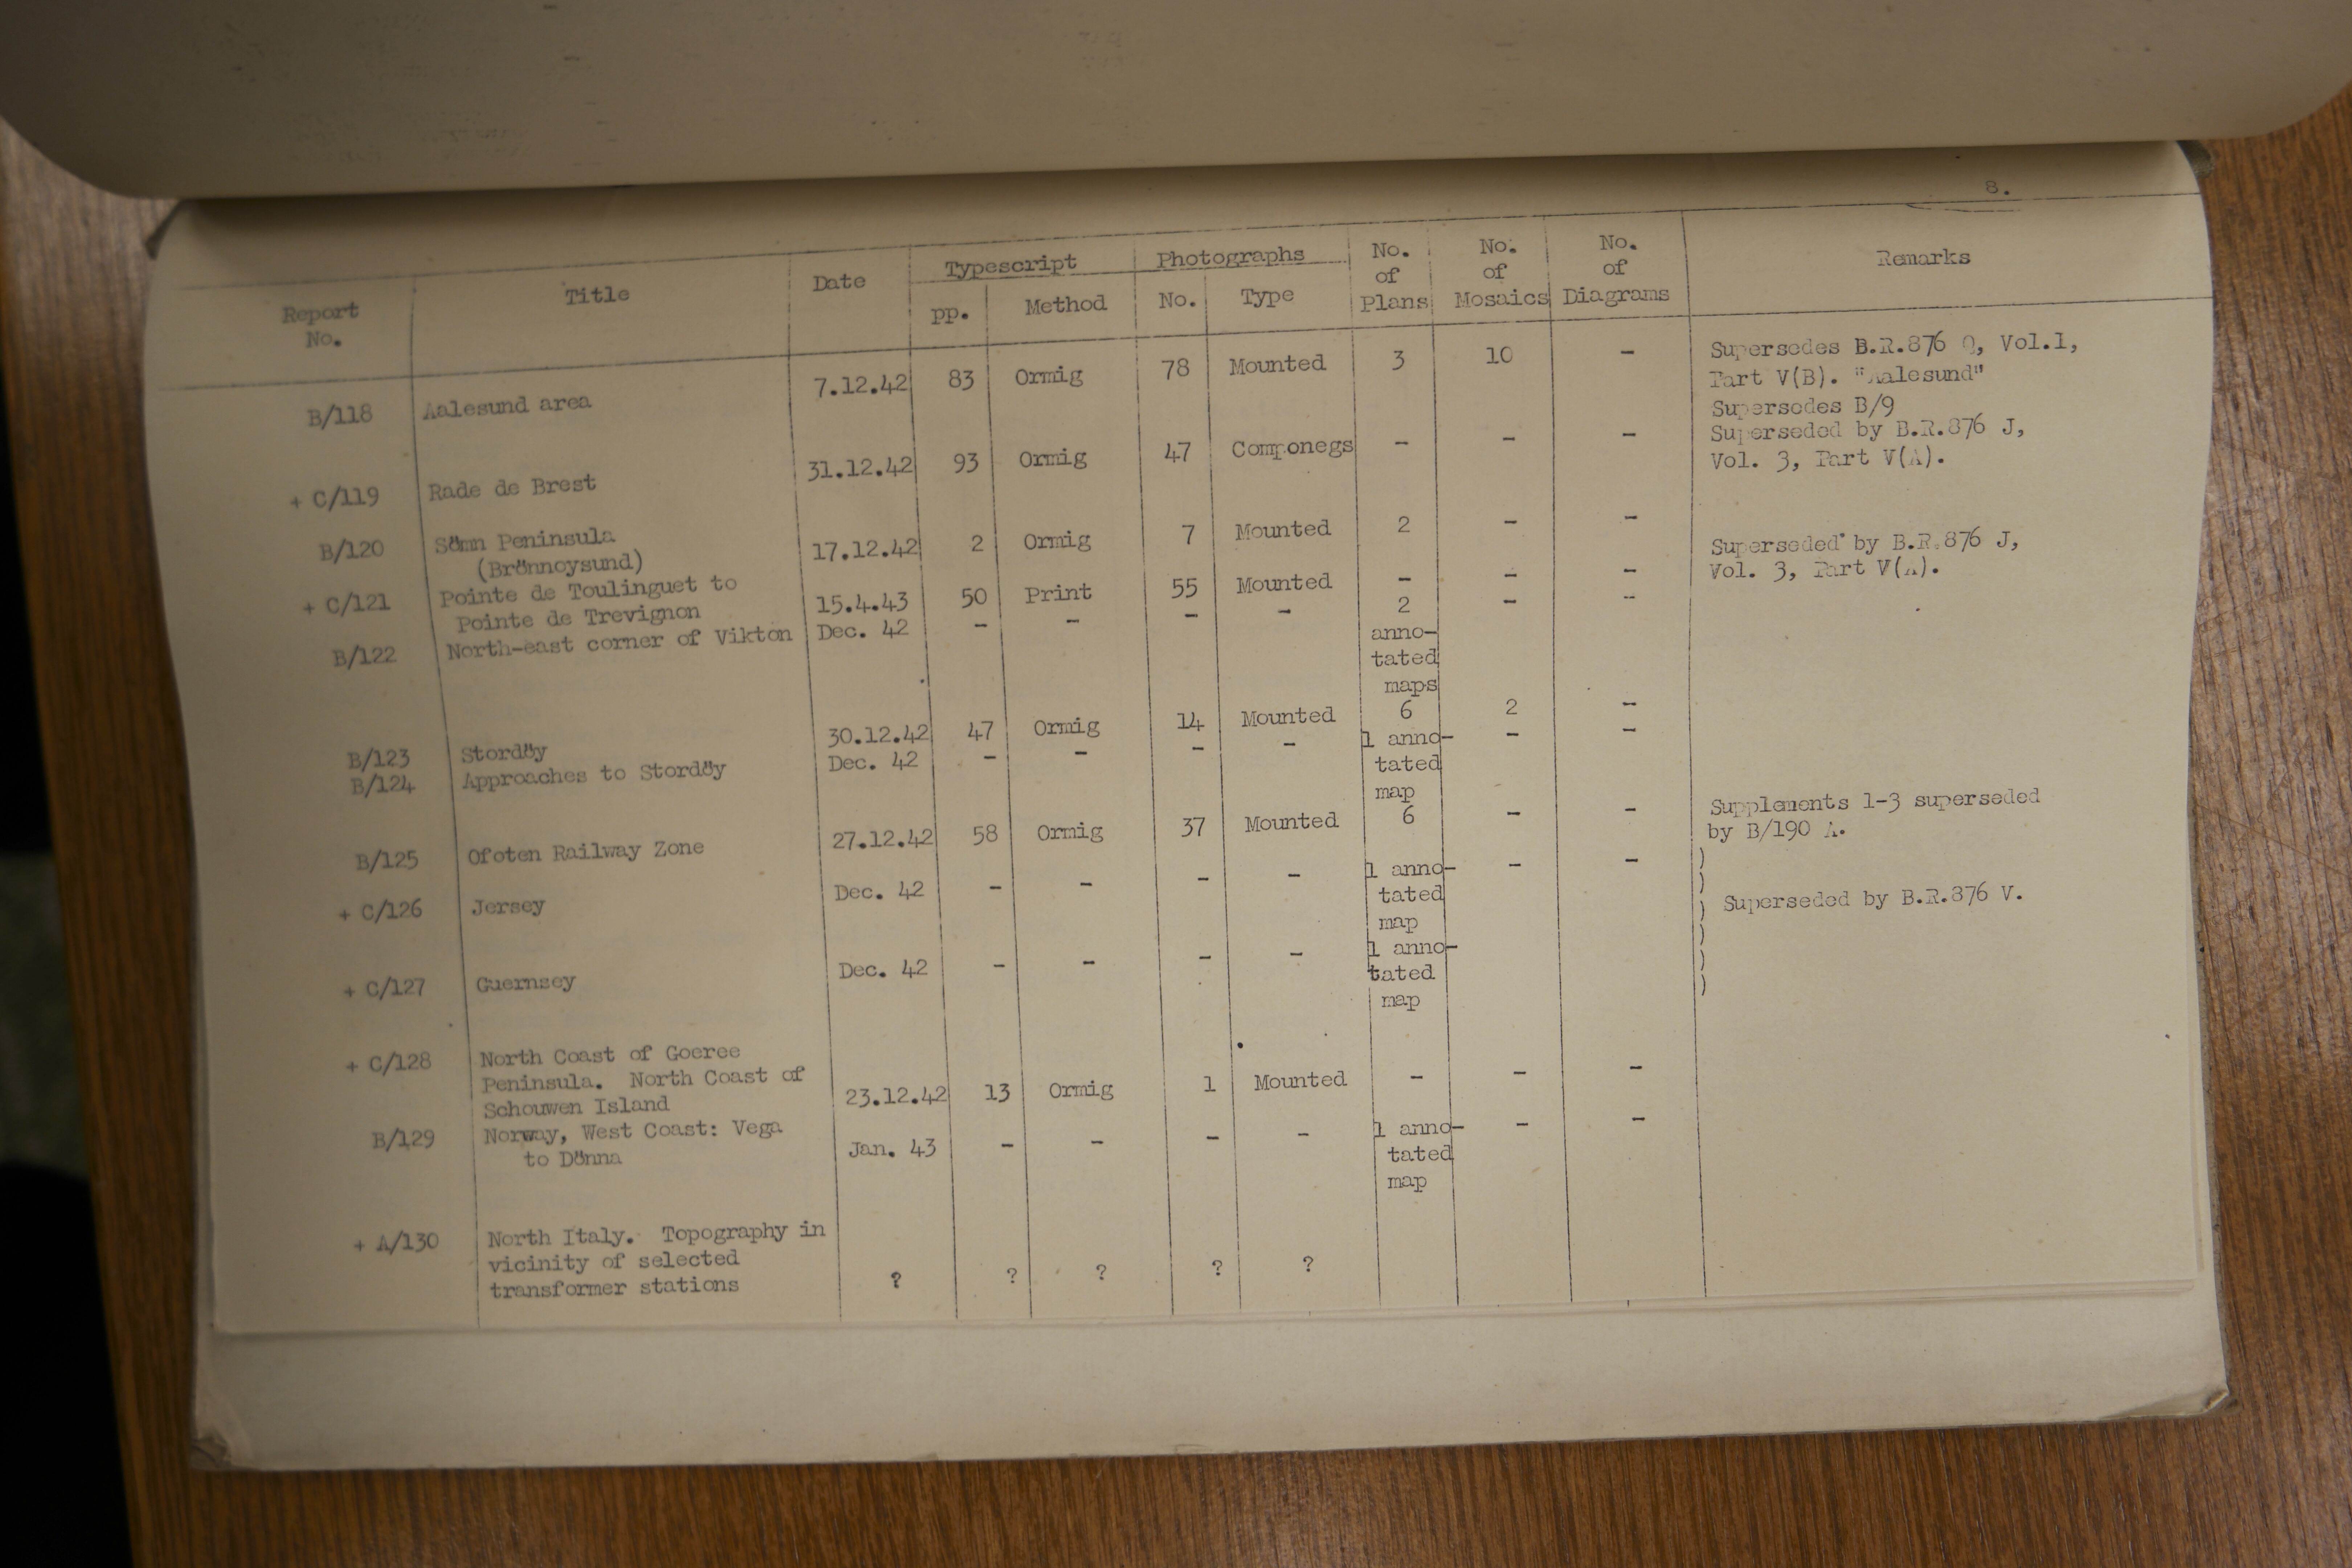 8.
Report No. Title Date Typescript Photographs No. of Plans No. of Mosaics No. of Diagrams Remarks
pp. Method No. Type
B/118 Aalesund area 7.12.42 83 Ormig 78 Mounted 3 10 - Supersedes B.R.876 Q, Vol.1,
Part V(B). "Aalesund"
Supersedes B/9
+ C/119 Rade de Brest 31.12.42 93 Ormig 47 Componegs - - - Superseded by B.R.876 J,
Vol. 3, Part V(A).
B/120 Sömn Peninsula 17.12.42 2 Ormig 7 Mounted 2 - -
(Brönnoysund)
+ C/121 Pointe de Toulinguet to 15.4.43 50 Print 55 Mounted - - - Superseded by B.R.876 J,
Pointe de Trevignon Vol. 3, Part V(A).
B/122 North-east corner of Vikton Dec. 42 - - - - 2 - -
anno-
tated
maps
B/123 Stordöy 30.12.42 47 Ormig 14 Mounted 6 2 -
B/124 Approaches to Stordöy Dec. 42 - - - - 1 anno- - -
tated
map
B/125 Ofoten Railway Zone 27.12.42 58 Ormig 37 Mounted 6 - - Supplements 1-3 superseded
by B/190 A.
+ C/126 Jersey Dec. 42 - - - - 1 anno- - - )
tated ) Superseded by B.R.876 V.
map )
+ C/127 Guernsey Dec. 42 - - - - 1 anno- )
tated )
map )
+ C/128 North Coast of Goeree
Peninsula. North Coast of
Schouwen Island 23.12.42 13 Ormig 1 Mounted - - -
B/129 Norway, West Coast: Vega Jan. 43 - - - - 1 anno- - -
to Dönna tated
map
+ A/130 North Italy. Topography in
vicinity of selected
transformer stations ? ? ? ? ?